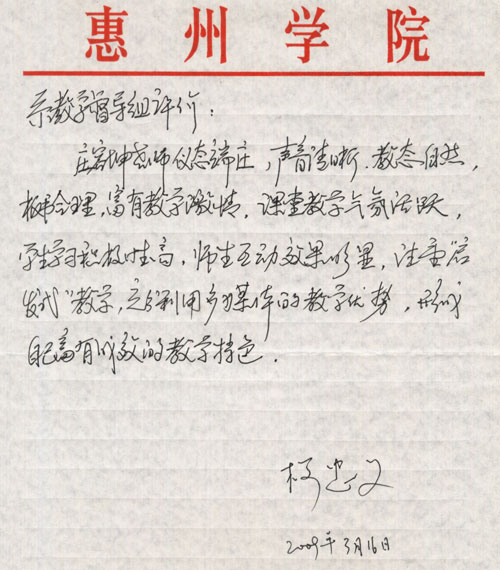 惠州学院
系教学督导组评价:
庄容坤老师仪态端庄,声音清晰,教态自然,
板书合理,富有教学激情,课堂教学气氛活跃,
学生学习积极性高,师生互动效果明显,注重“启
发式”教学,充分利用多媒体的教学优势,形成
自己富有成效的教学特色.
杨忠义
2009年3月16日